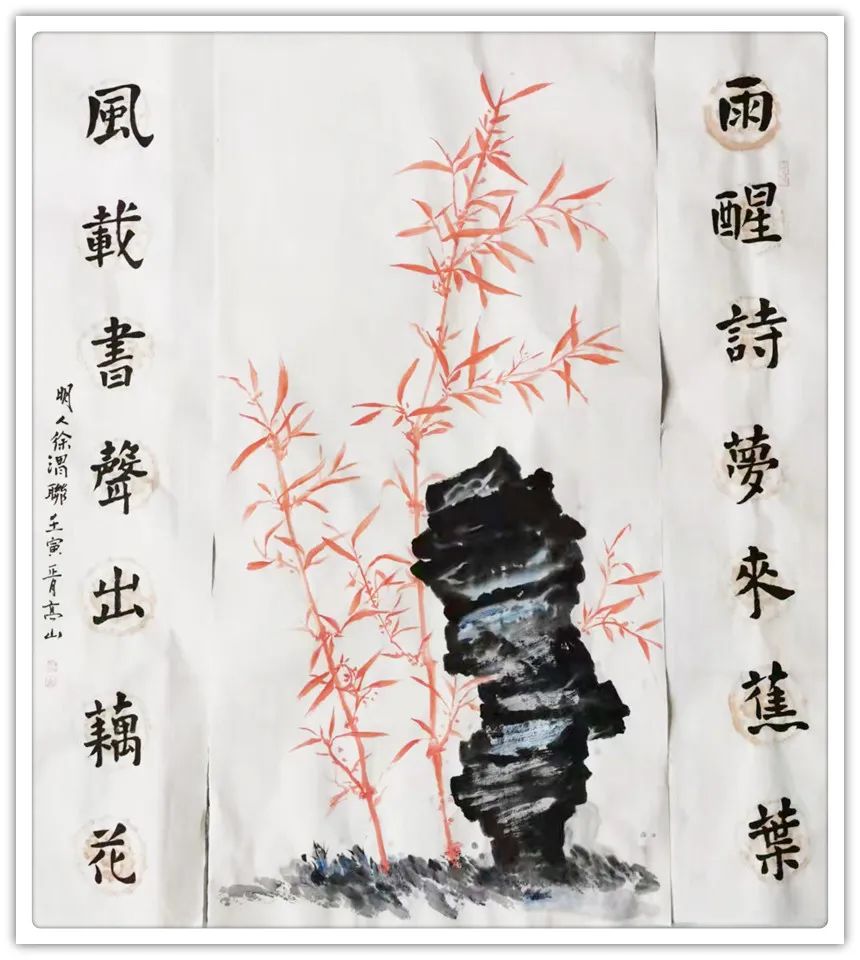 雨醒詩夢來蕉葉
風載書聲出藕花
明人徐渭聯壬寅正月高山